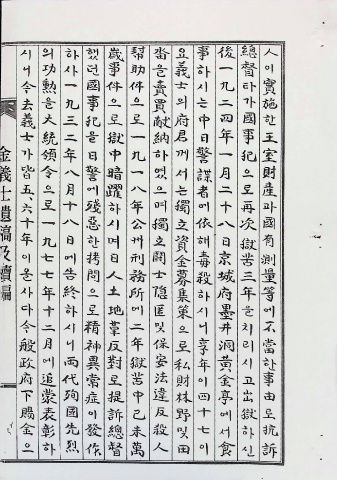 人이實施한王室財産과國有測量等에不當한事由로抗訴
總督타가國事犯으로再次獄苦三年을치리시고出獄하신
後一九二四年一月二十八日京城府墨井洞黃金亭에서食
事하시는中日警諜者에依해毒殺하시니享年이四十七이
요義士의府君께서는獨立資金募集策으로私財林野및田
畓을賣買獻納하였으며獨立鬪士隱匿및保安法違反殺人
幇助件으로一九一八年公州刑務所에二年獄苦中己未萬
歲事件으로獄中暗躍하시며日人土地反對로提訴總督
했던國事犯을日警에殘惡한拷問으로精神異常症이發作
하사一九三二年八月十八日에告終하시니兩代殉國先烈
의功勲을大統領令으로一九七七年十二月에追褒表彰하
시니今去義士가皆五、六十年이운사다今般政府下賜金으
金義士遺稿及續編